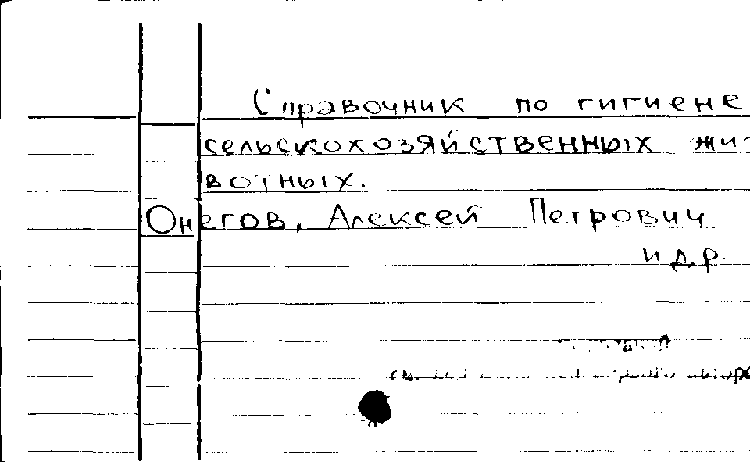 Справочник по гигиене
сельскохозяйственных жи-
вотных.
Онегов, Алексей Петрович
и др.